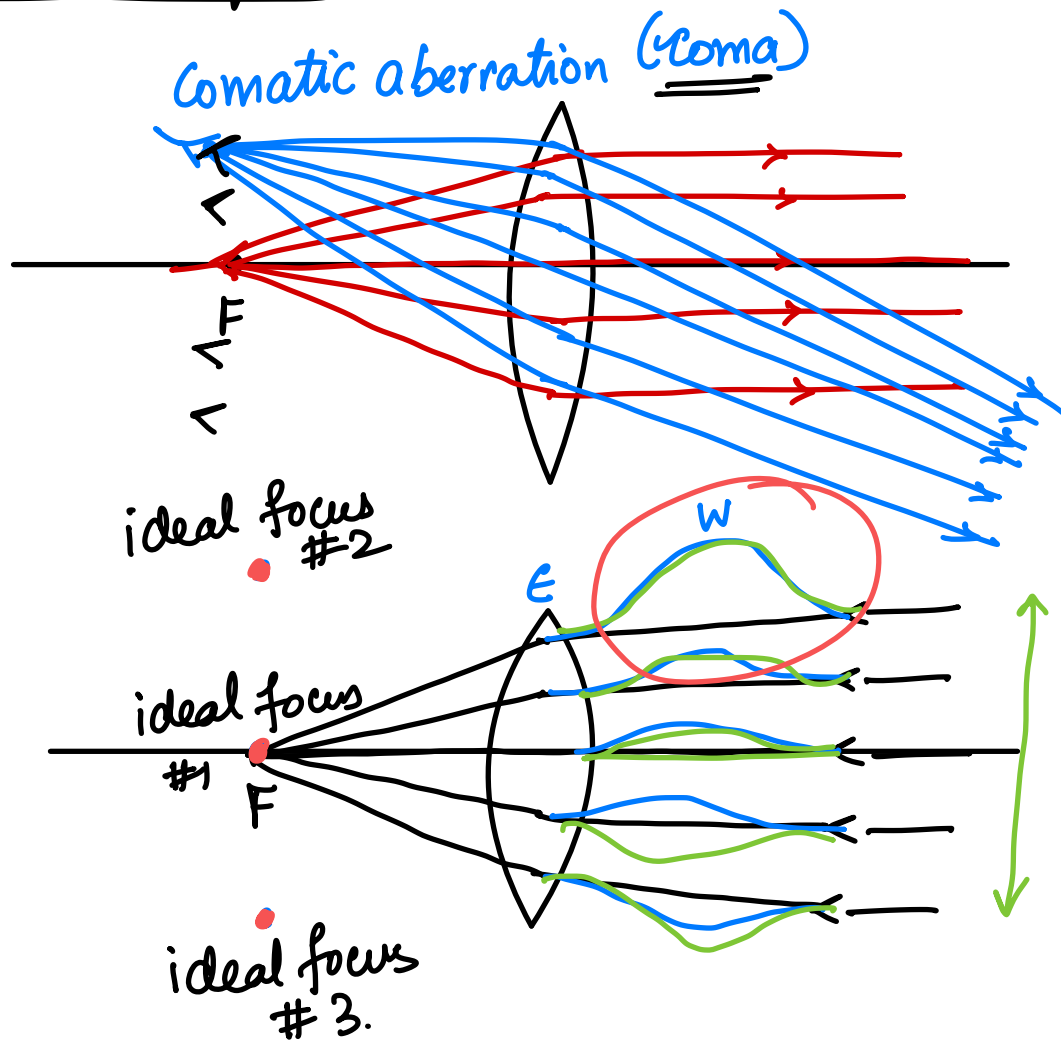 Comatic aberration (Coma)
F
ideal focus
#2
E
W
ideal focus
#1
F
ideal focus
#3.